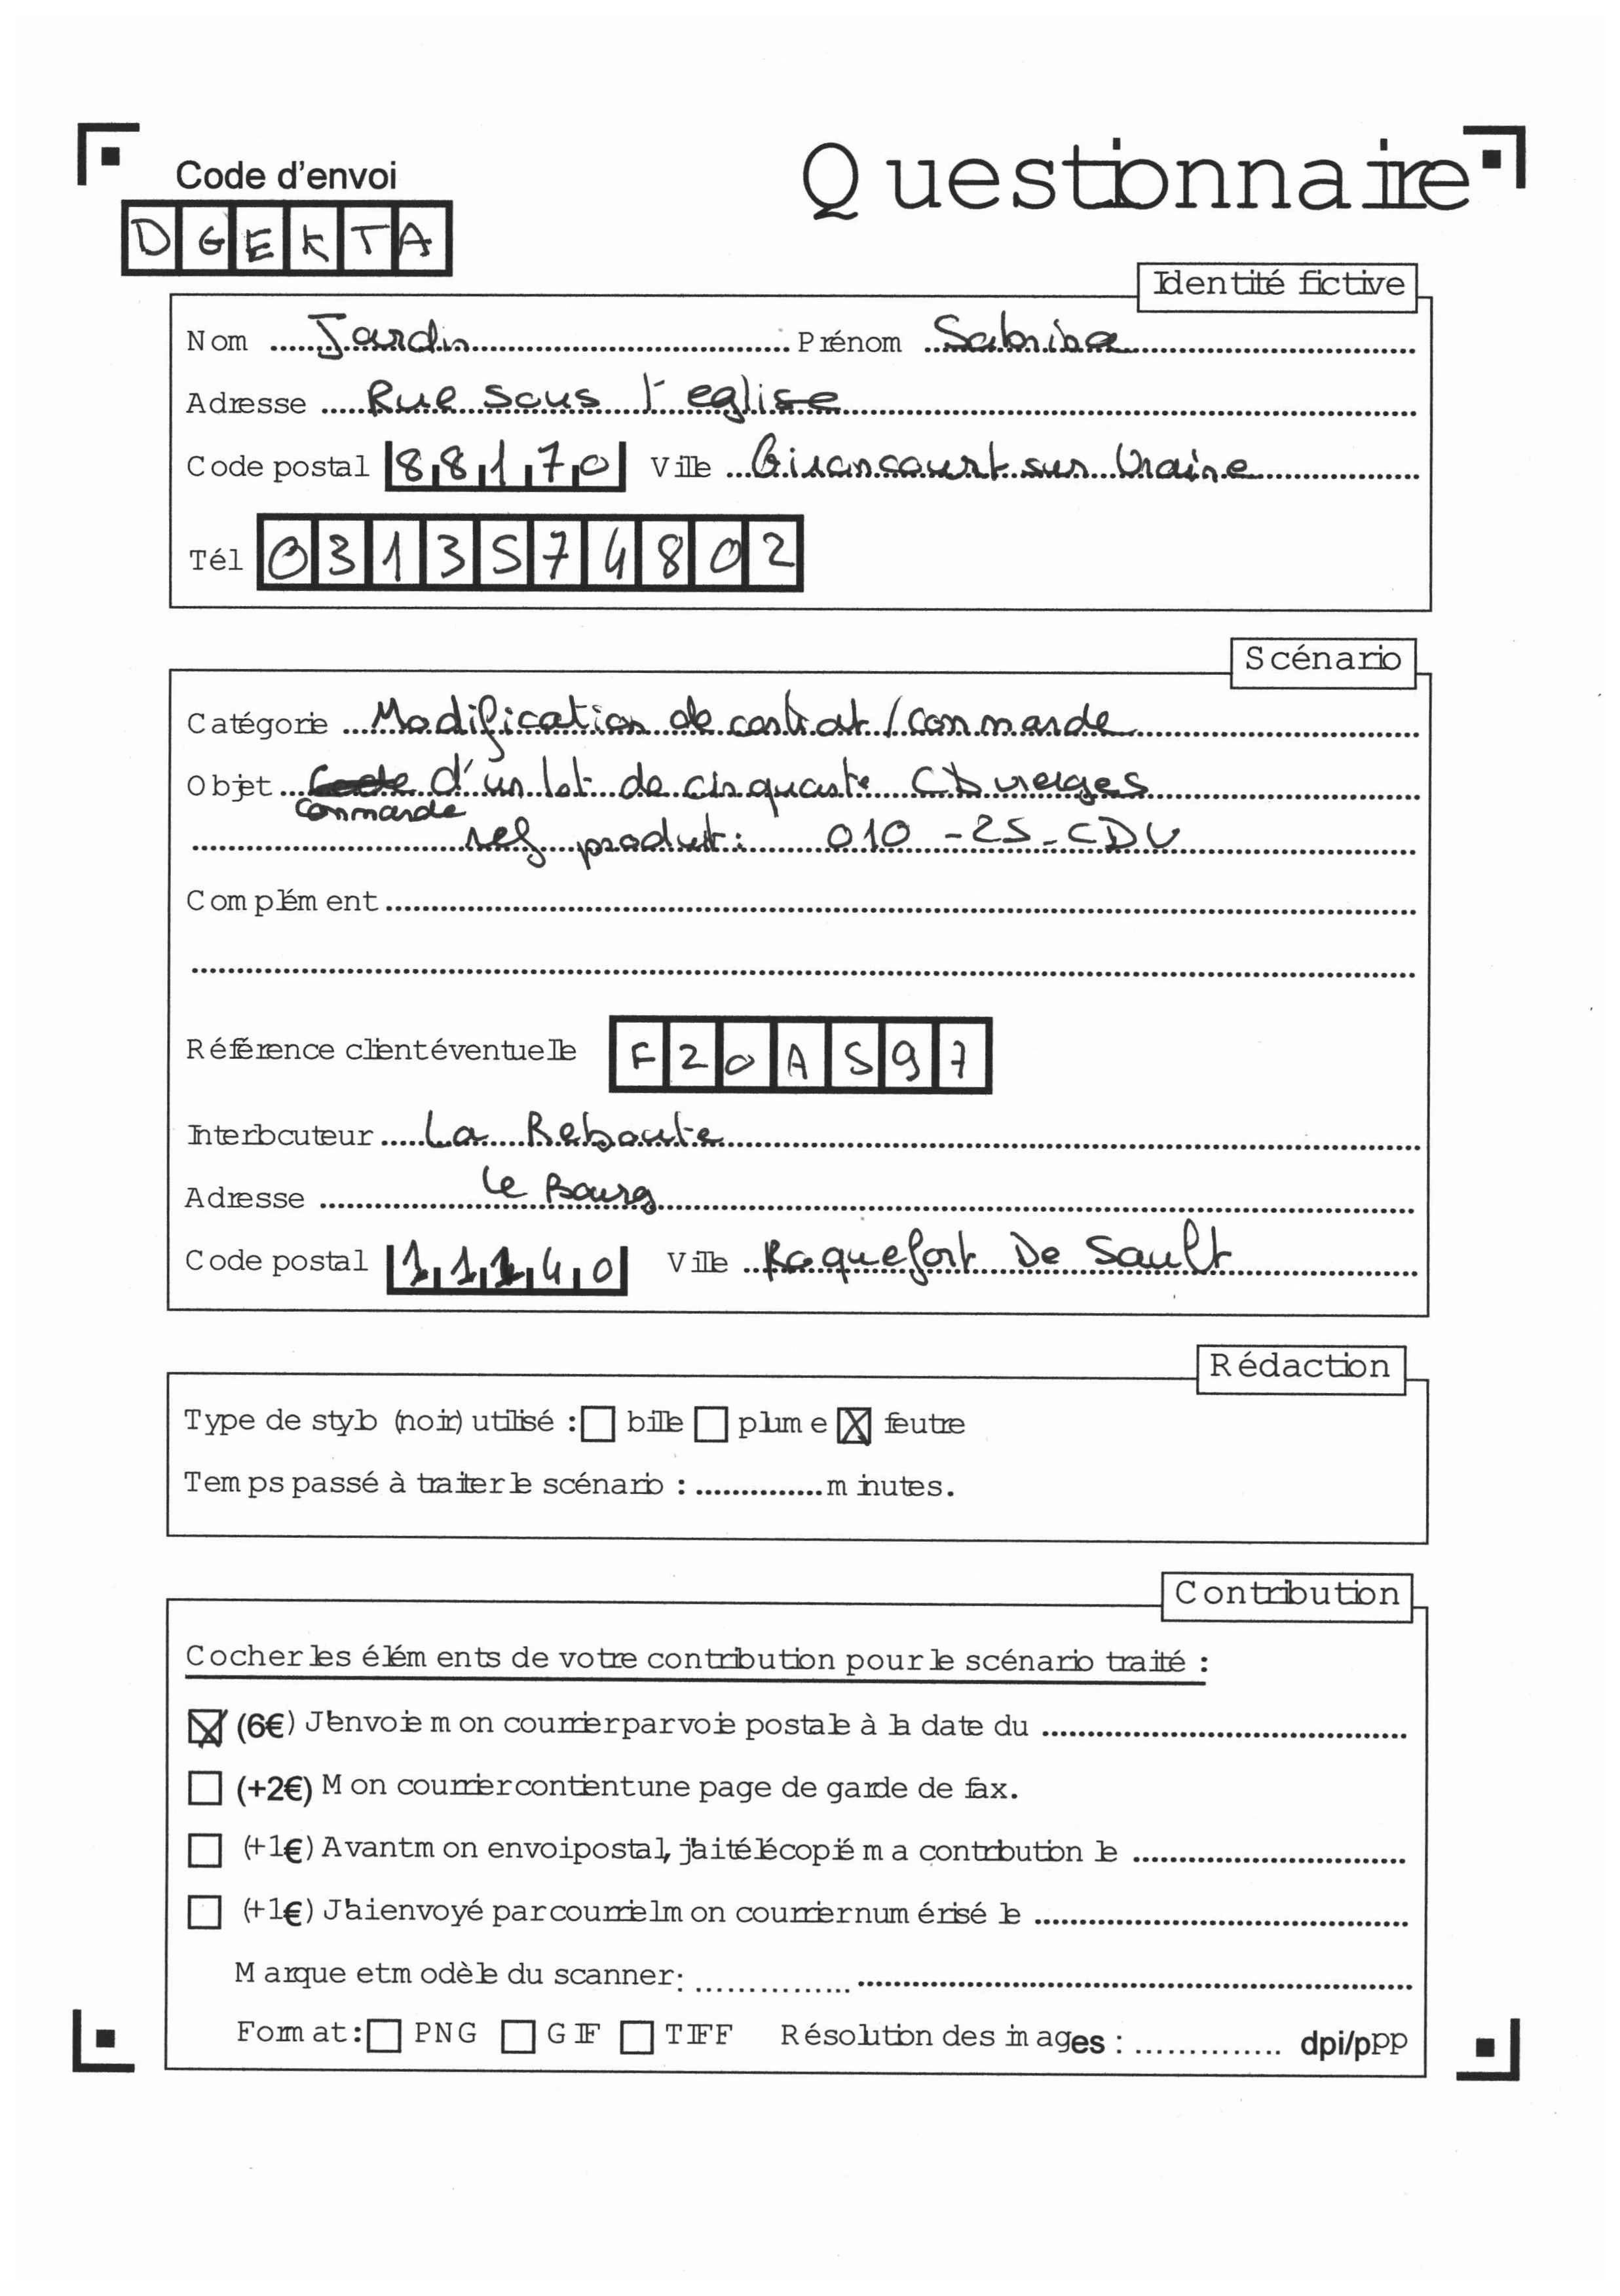 Code d'envoi
Questionnaire
DGEKTA
Identité fictive
Nom Jardin Prénom Sabrina
Adresse Rue sous l'eglise
Code postal 88170 Ville Girancourt sur Vraine
Tél 0313574802
Scénario
Catégorie Modification de contrat / commande
Objet d'un lot de cinquante CD vierges
commande
ref produit : 010-25-CDV
Complément
Référence client éventuelle F20AS97
Interlocuteur La Reboute
Adresse Le Bourg
Code postal 11140 Ville Roquefort De Sault
Rédaction
Type de stylo (noir) utilisé : bille plume feutre
Temps passé à traiter le scénario : minutes.
Contribution
Cocher les éléments de votre contribution pour le scénario traité :
(6€) J'envoie mon courrier par voie postale à la date du
(+2€) Mon courrier contient une page de garde de fax.
(+1€) Avant mon envoi postal, j'ai télécopié ma contribution le
(+1€) J'ai envoyé par courriel mon courrier numérisé le
Marque et modèle du scanner:
Format: PNG GIF TIFF Résolution des images : dpi/ppp